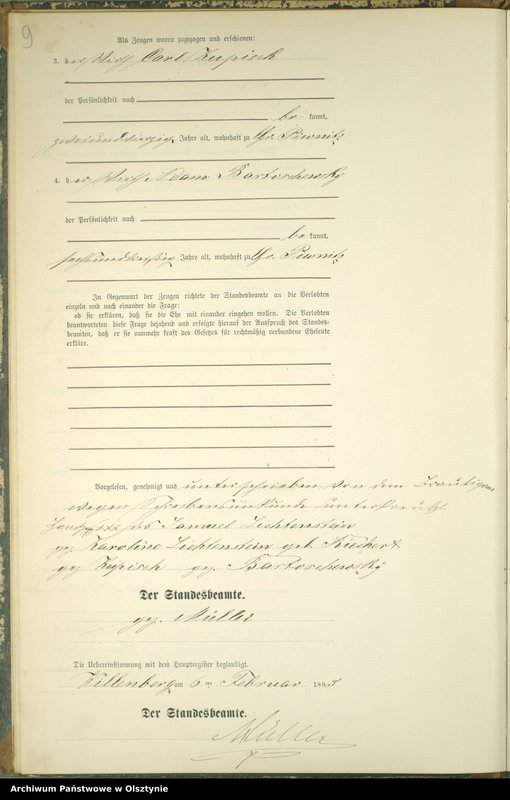 9
Als Zeugen waren zugezogen und erschienen:
3. der Wirth Carl Zupisch
der Persönlichkeit nach
be kannt,
zweiundvierzig Jahre alt, wohnhaft zu Gr. Piwnitz
4. der Wirth Adam Bartoschewsky
der Persönlichkeit nach
be kannt,
sechsunddreißig Jahre alt, wohnhaft zu Gr. Piwnitz
In Gegenwart der Zeugen richtete der Standesbeamte an die Verlobten
einzeln und nach einander die Frage:
ob sie erklären, daß sie die Ehe mit einander eingehen wollen. Die Verlobten
beantworteten diese Frage bejahend und erfolgte hierauf der Ausspruch des Standes-
beamten, daß er sie nunmehr kraft des Gesetzes für rechtmäßig verbundene Eheleute
erkläre.
Vorgelesen, genehmigt und unterschrieben von dem Bräutigam
wegen Schreibensunkunde unterkreuzt.
Handzeichen xxx des Samuel Lichtenstein
gez. Karoline Lichtenstein geb. Küchert
gez. Zupisch gez. Bartoschewsky
Der Standesbeamte.
gez. Müller
Die Uebereinstimmung mit dem Hauptregister beglaubigt.
Willenberg am 6ten Februar 1885
Der Standesbeamte.
Müller
Archiwum Państwowe w Olsztynie